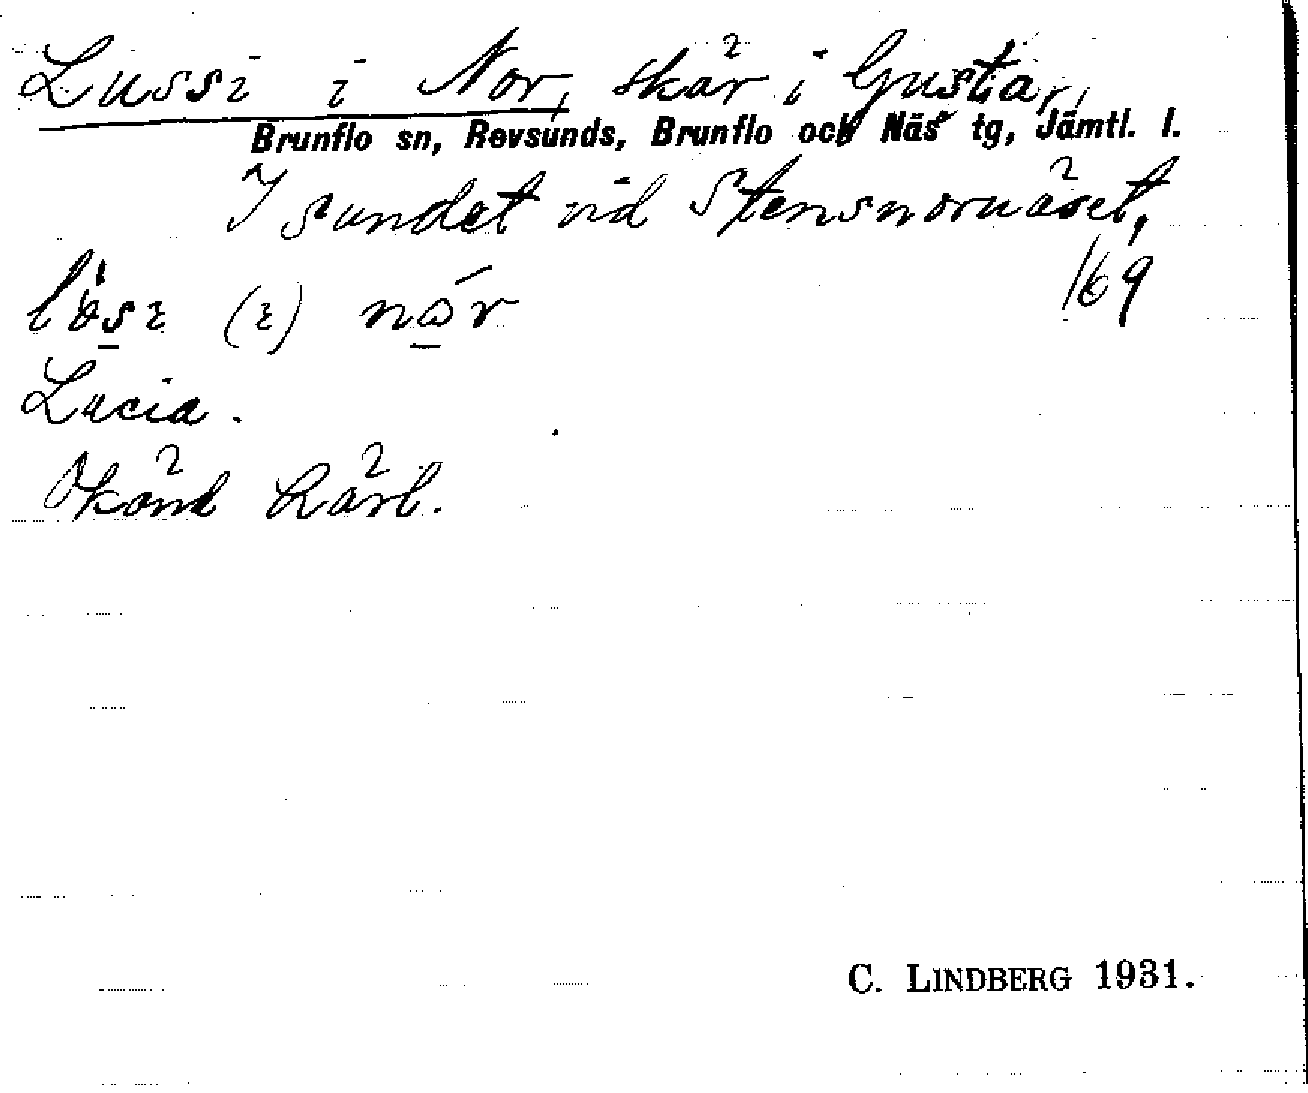 Lussi i Nor, skär i Gustar,
Brunflo sn, Revsunds, Brunflo och Näs tg, Jämtl. l.
I sundet vid Stensnornäset,
169
lösi (i) nór
Lucia.
Okänd härl.
C. LINDBERG 1931.